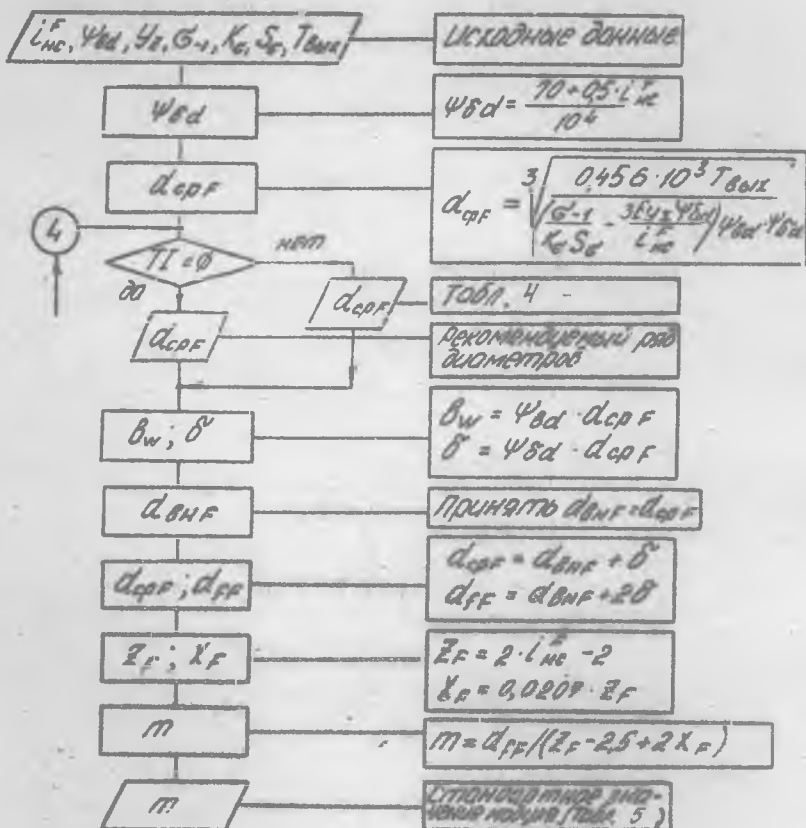 i^F_HC, Ψ_Bd, Y_Σ, σ-1, K_σ, S_σ, T_вых
исходные данные
Ψδd
Ψδd = (70+0,5·i^F_HC)/10^4
d_срF
d_срF = ∛(0,456·10^3 T_вых / ((σ-1/(K_σ S_σ) - 3EY_Σ Ψδd/i^F_HC) Ψ_Bd·Ψδd))
4
TI=0
нет
да
d_срF
табл. 4
d_срF
рекомендуемый ряд
диаметров
B_w; δ
B_w = Ψ_Bd · d_срF
δ = Ψδd · d_срF
d_внF
принять d_внF=d_срF
d_срF; d_fF
d_срF = d_внF + δ
d_fF = d_внF + 2δ
Z_F; X_F
Z_F = 2·i^F_HC - 2
X_F = 0,0207·Z_F
m
m = d_fF/(Z_F-2,5+2X_F)
m
стандартное зна-
чение модуля (табл. 5)